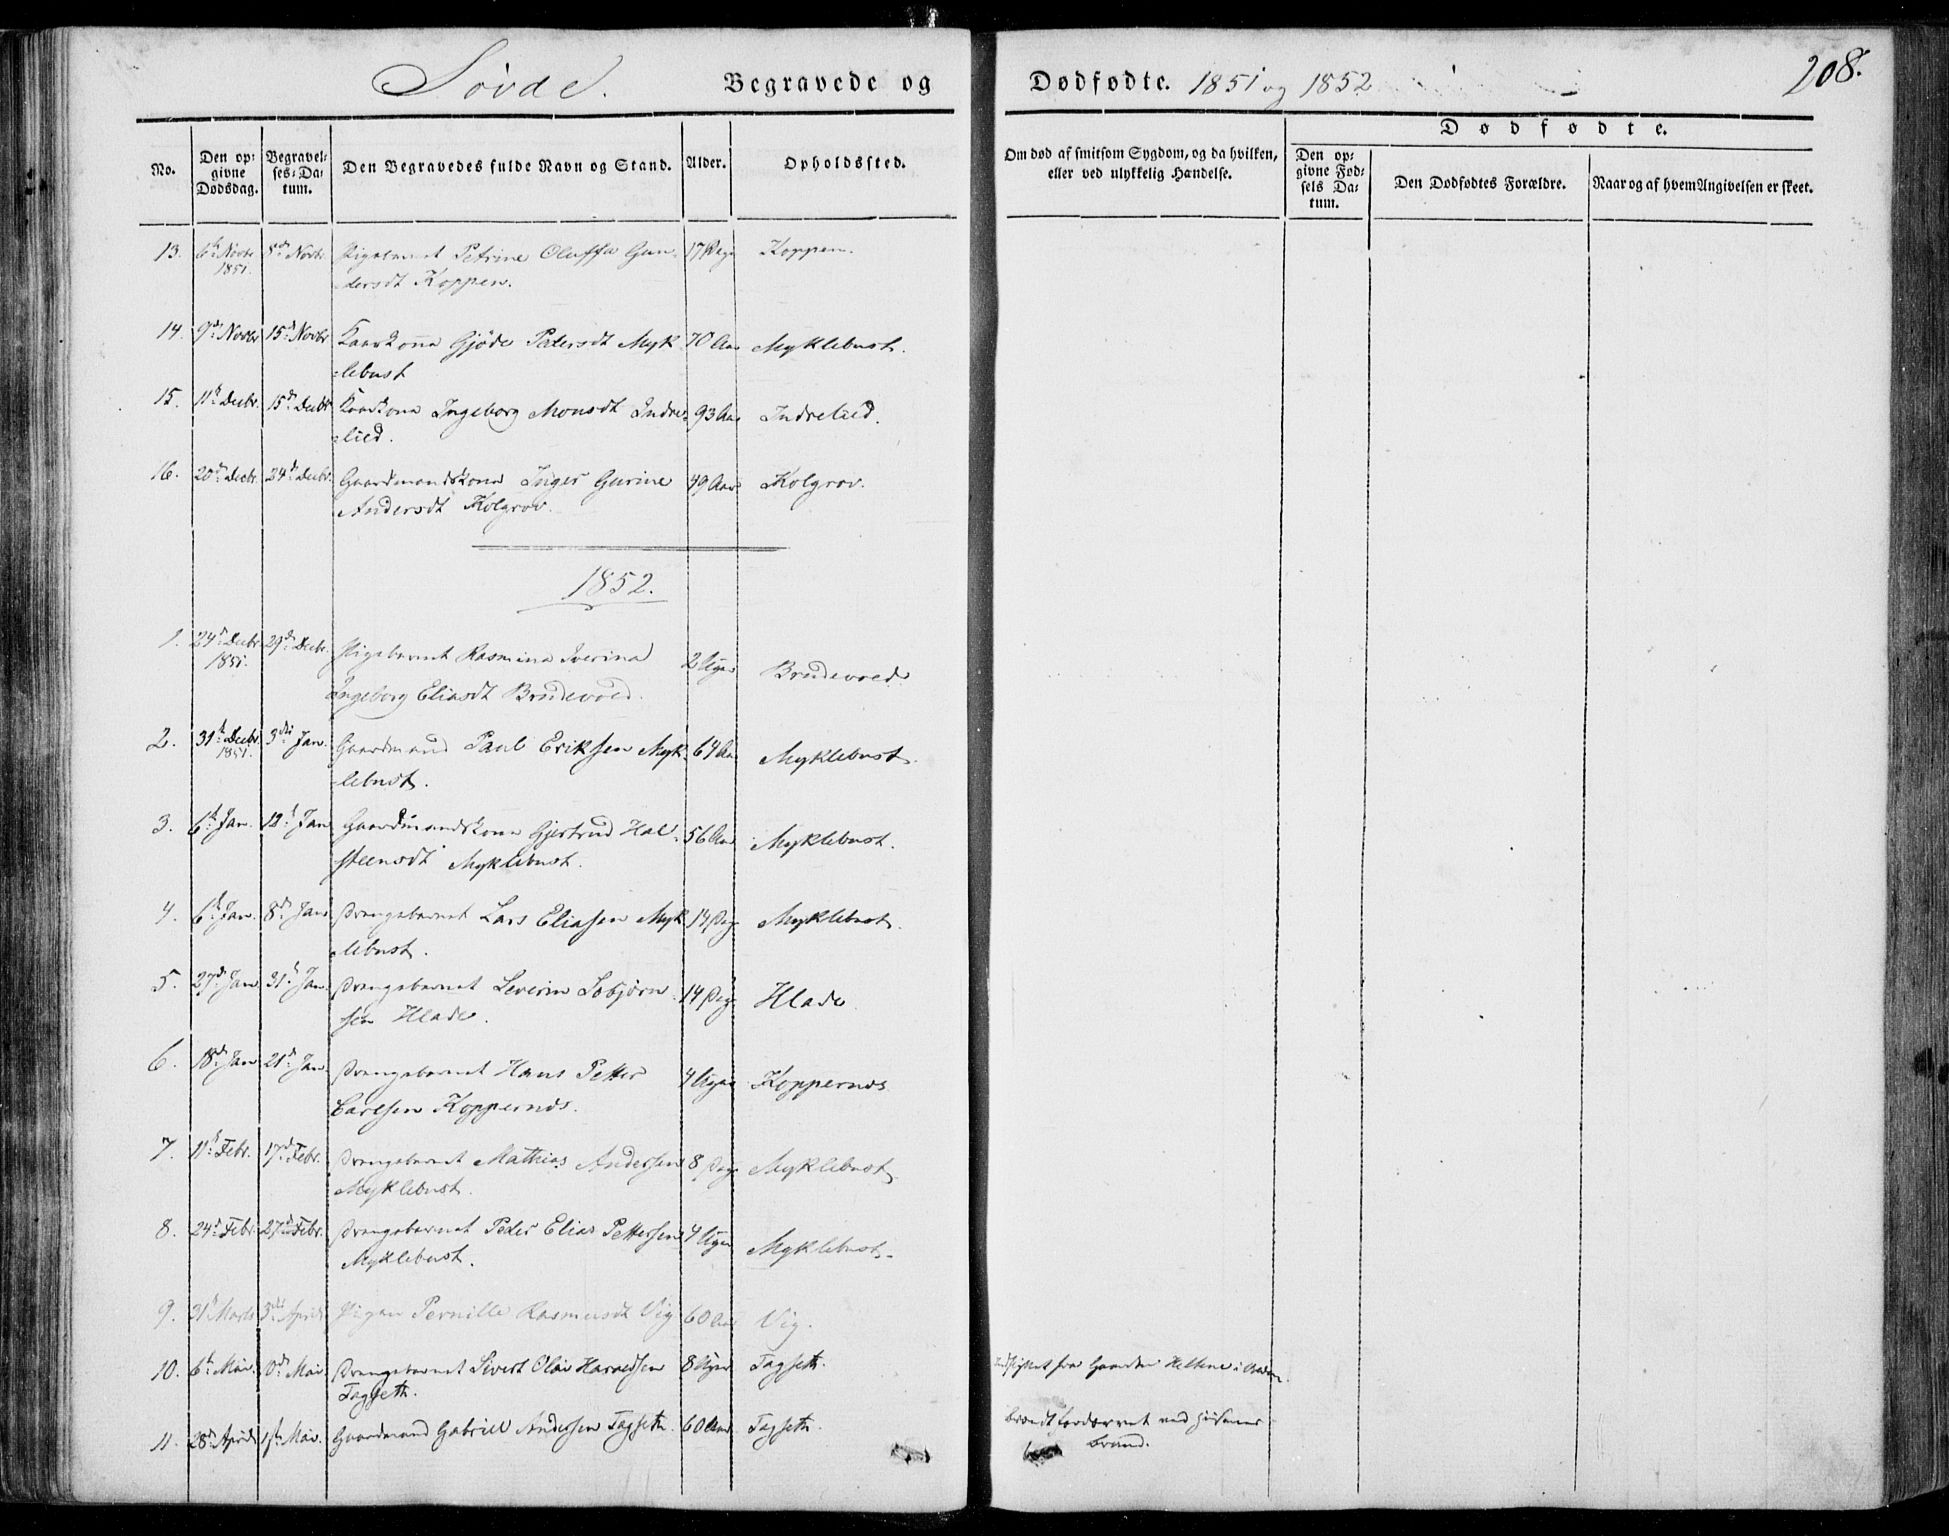 Søvde.
Begravede og
Dødfødte. 1851 og 1852
208.
No.
Den op=
givne
Dødsdag.
Begravel=
ses=Da=
tum.
Den Begravedes fulde Navn og Stand.
Alder.
Opholdssted.
Om død af smitsom Sygdom, og da hvilken,
eller ved ulykkelig Hændelse.
Dødfødte.
Den op=
givne Fød=
sels Da=
tum.
Den Dødfødtes Forældre.
Naar og af hvem Angivelsen er skeet.
13. 6te Novbr 8de Novbr Pigebarnet Petrine Oluffa Gun= 17 Dage Koppen.
1851. dersdt Koppen.
14. 9de Novbr 15de Novbr Kaarkona Gjøde Pedersdt Myk= 70 Aar Myklebust.
=lebust
15. 11te Decbr. 15de Decbr Kaarkona Ingeborg Monsdt Indre= 93 Aar Indrelied.
=lied.
16. 20de Decbr. 24de Decbr. Gaardmandskona Inger Gurine 49 Aar Kolgrov.
Andersdt Kolgrov.
1852.
1. 24de Decbr. 29de Decbr. Pigebarnet Rasmina Iverina 2 Uger Brudevold.
1851. Ingeborg Eliasdt Brudevold.
2. 31te Decbr. 3die Jan. Gaardmand Paul Eriksen Myk= 64 Aar Myklebust.
1851. =lebust.
3. 6te Jan. 12te Jan Gaardmandskona Gjertrud Hal= 56 Aar Myklebust.
steensdt Myklebust.
4. 6te Jan. 8de Jan. Drengebarnet Lars Eliasen Myk 14 Dag. Myklebust.
=lebust.
5. 27de Jan 31te Jan. Drengebarnet Severin Esbjørn= 14 Dag. Hlade
sen Hlade.
6. 18de Jan 21de Jan. Drengebarnet Hans Petter 4 Uger Koppernæs
Carlsen Koppernæs.
7. 11te Febr. 17de Febr. Drengebarnet Mathias Andersen 8 Dage Myklebust
Myklebust.
8. 24de Febr. 27de Febr. Drengebarnet Peder Elias Pettersen 4 Uger Myklebust.
Myklebust.
9. 31te Marts 3die April Pigen Pernille Rasmusdt Vig 60 Aar Vig.
10. 6te Mai. Mai. Drengebarnet Sivert Olai Haraldsen 8 Uger. Tagseth. Indflyttet fra Gaarden i
Tagseth.
11. 28de April 1ste Mai. Gaardmand Gabriel Andersen Tagseth. 60 Aar. Tagseth. brandt fordærvet ved Husenes
brand.